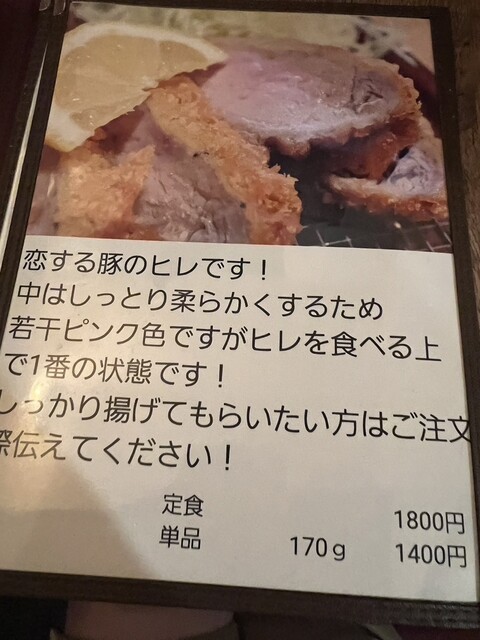 恋する豚のヒレです！
中はしっとり柔らかくするため
若干ピンク色ですがヒレを食べる上
で1番の状態です！
しっかり揚げてもらいたい方はご注文
際伝えてください！
定食 1800円
単品 170g 1400円